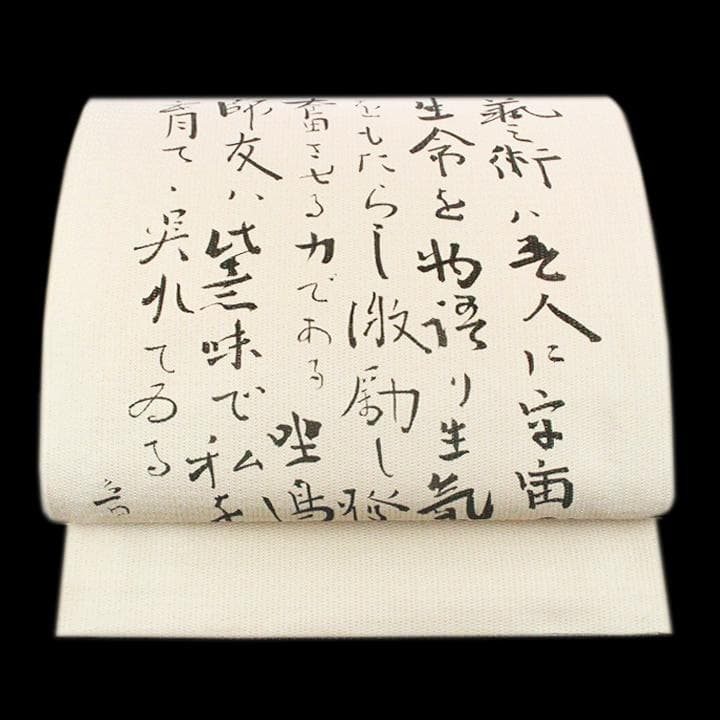 藝術ハ吾人に宇宙
生命を物語り生氣
をもたらし激励し發
奮させる力である
師友ハ此意味で私を
育て、呉れてゐる